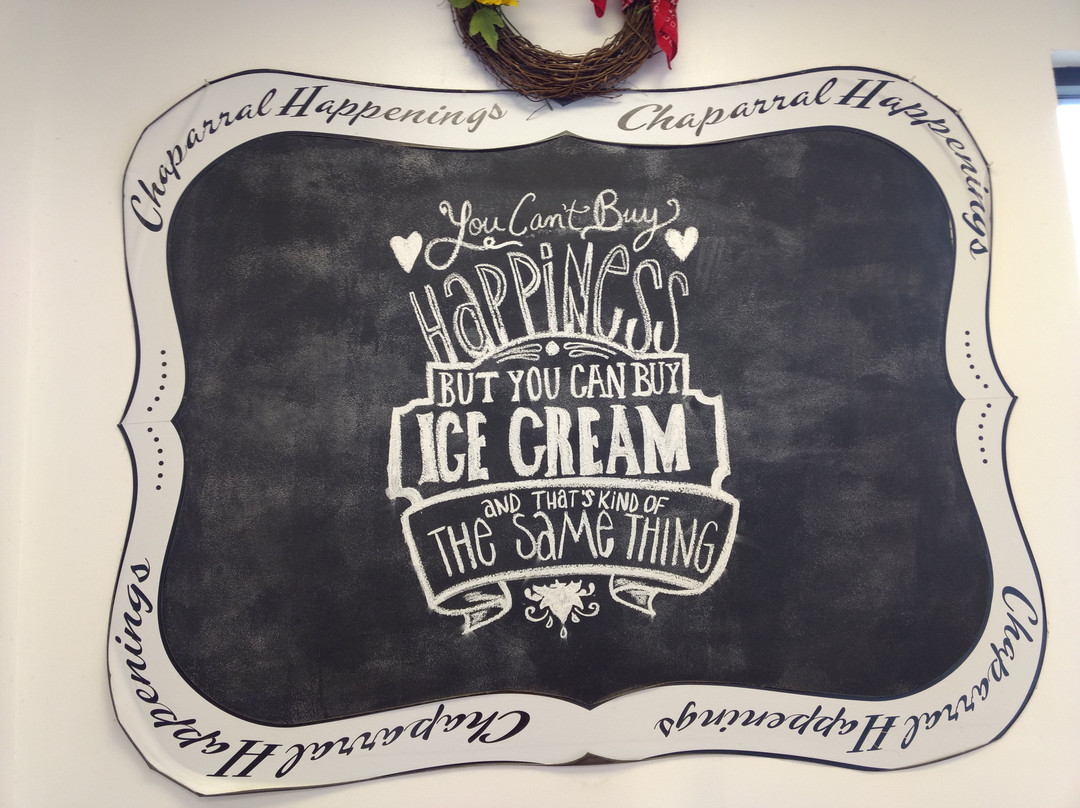 Chaparral Happenings
Chaparral Happenings
You Can't Buy
HAPPINESS
BUT YOU CAN BUY
ICE CREAM
AND THAT'S KIND OF
THE SAME THING
Chaparral Happenings
Chaparral Happenings